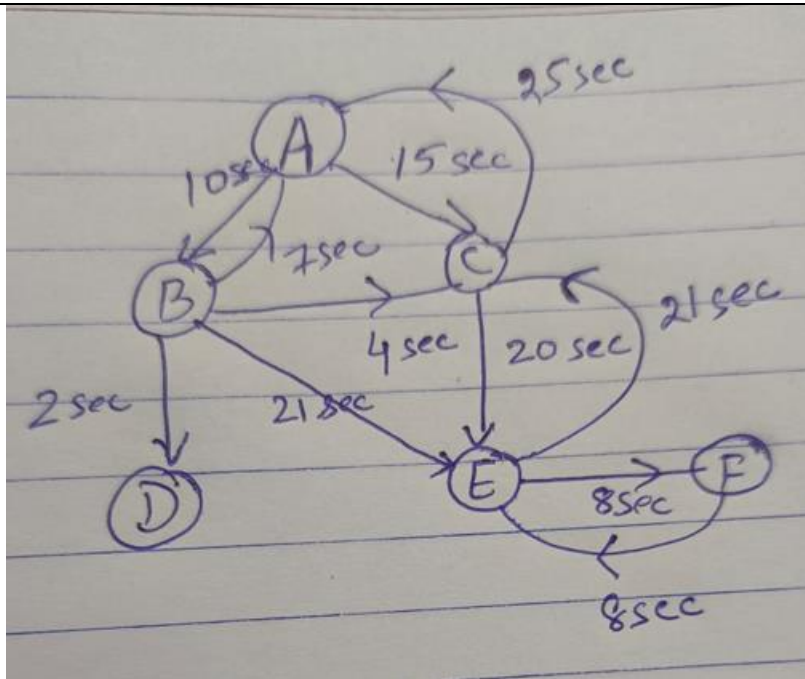 25sec
A
10sec
15sec
7sec
C
B
21sec
4sec
20sec
2sec
21sec
E
F
D
8sec
8sec